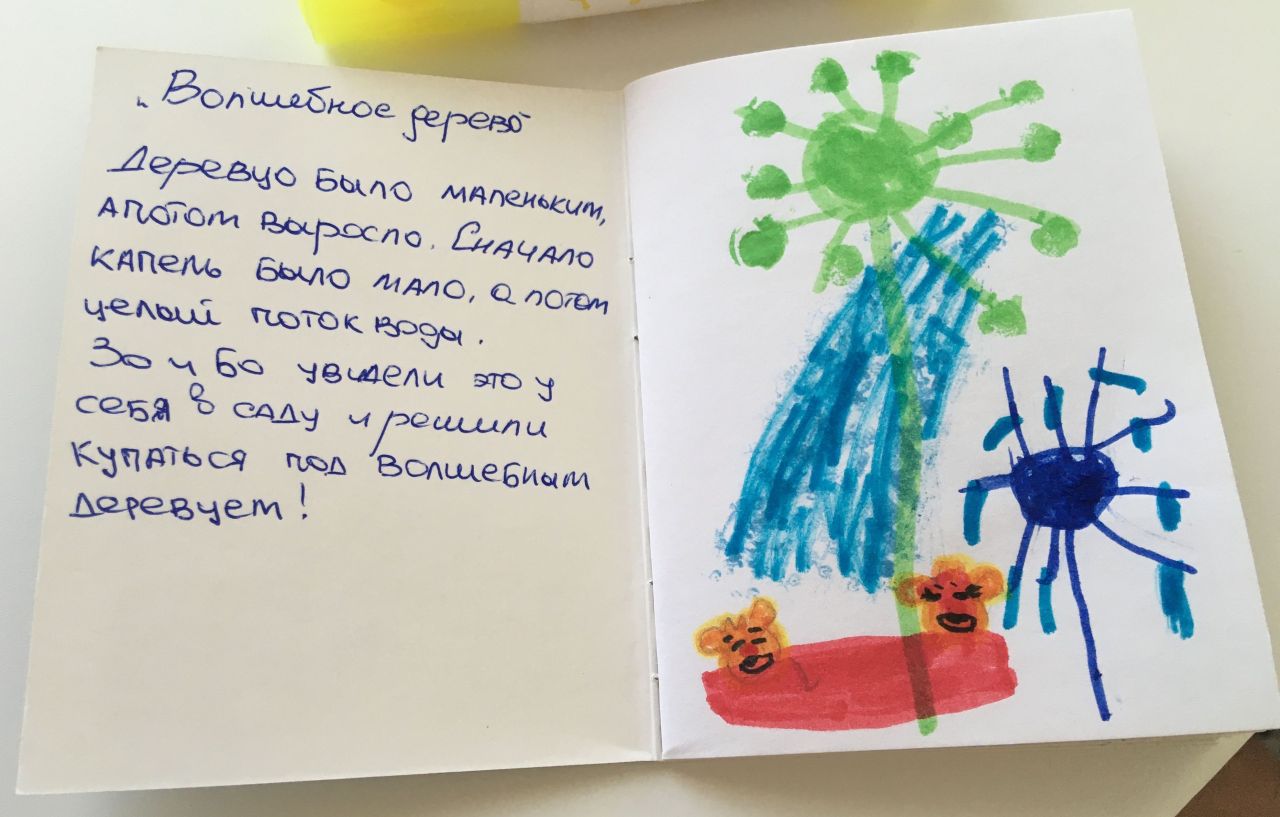 „Волшебное дерево"
Деревцо было маленьким,
а потом выросло. Сначало
капель было мало, а потом
целый поток воды.
Зо и Бо увидели это у
себя в саду и решили
купаться под волшебным
деревцем!